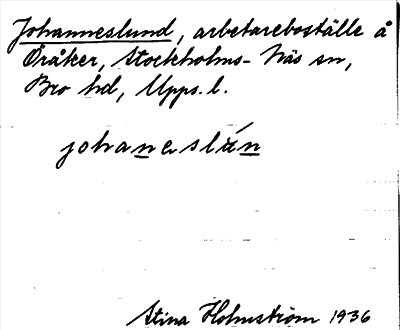 Johanneslund, arbetareboställe å
Öråker, Stockholms-Näs sn,
Bro hd, Upps. l.
johaneslún
Stina Holmström 1936